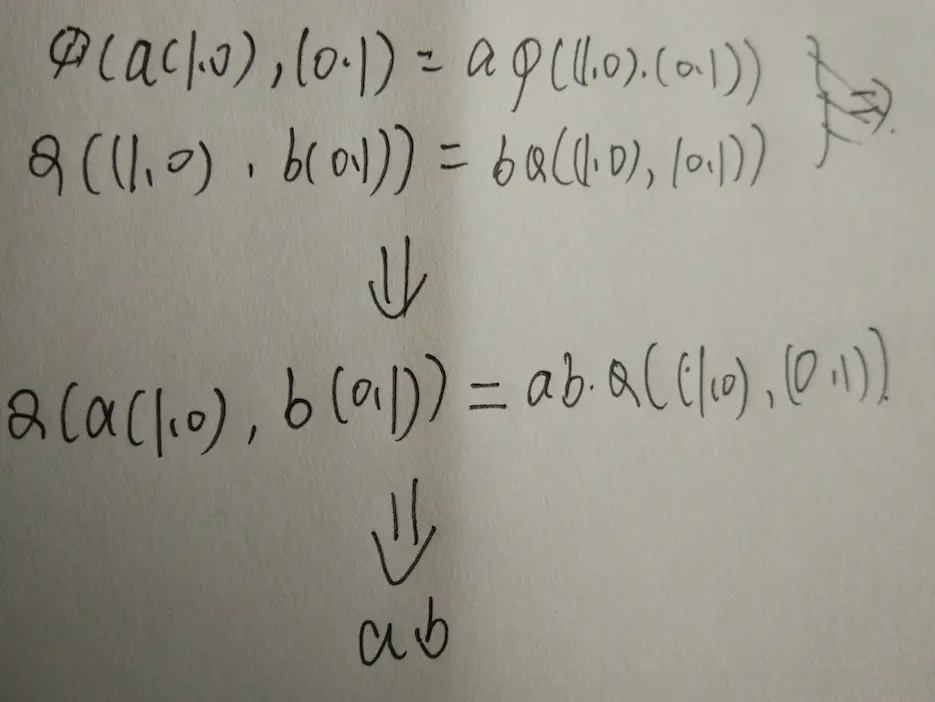 φ(a(1.0), (0.1) = a φ((1.0).(0.1))
Q((1.0) . b(0.1)) = b Q((1.0), (0.1))
⇓
Q(a(1.0), b(0.1)) = ab. Q((1.0), (0.1))
⇓
ab